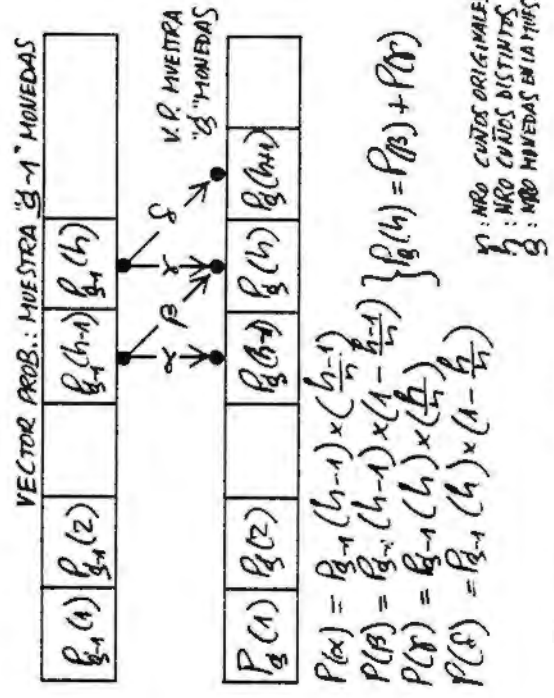 VECTOR PROB.: MUESTRA "g-1" MONEDAS
P_{g-1}(1) P_{g-1}(2) P_{g-1}(h-1) P_{g-1}(h)
α β γ δ
V.P. MUESTRA
"g" MONEDAS
P_g(1) P_g(2) P_g(h-1) P_g(h) P_g(h+1)
P(α) = P_{g-1}(h-1) × (\frac{h-1}{n})
P(β) = P_{g-1}(h-1) × (1 - \frac{h-1}{n})
P(γ) = P_{g-1}(h) × (\frac{h}{n})
P(δ) = P_{g-1}(h) × (1 - \frac{h}{n})
} P_g(h) = P(β) + P(γ)
n : NRO CUÑOS ORIGINALE
h : NRO CUÑOS DISTINTOS
g : NRO MONEDAS EN LA MUES